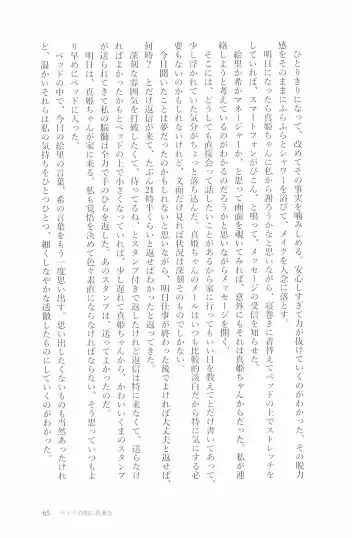 ひとりきりになって、改めてその事実を噛みしめる。安心しすぎて力が抜けていくのがわかる。その脱力
感をそのままにふらふらとシャワーを浴びて、メイクを入念に落とす。
明日になったら真姫ちゃんに私から謝ろうかなと思いながら、寝巻きに着替えてベッドの上でストレッチを
していれば、スマートフォンがぴこん、と鳴って、メッセージの受信を知らせた。
絵里か希かマネージャーか、と思って画面を覗いてみれば、意外にもそれは真姫ちゃんからだった。私が連
絡しようと考えているのがわかるのだろうかと思いながらメッセージを開く。
そこには、どうしても直接会って話したいことがあるから家に行ってもいい日を教えてとだけ書いてあって、
少し浮かれていた気分がちょっと落ち込んだ。真姫ちゃんのメールはいつも比較的淡白だから特に気にする必
要もないのかもしれないけれど、文面だけ見れば状況は深刻そのものでしかない。
今日聞いたことは夢だったのかもしれないと思いながら、明日仕事が終わった後でよければ大丈夫と返せば、
何時?とだけ返信が来て、たぶん21時半くらいと返せばわかったと返ってきた。
深刻な雰囲気を打破したくて、待ってるね、とスタンプ付きで返したけれど返信は特に来なくて、送らなけ
ればよかったかもとベッドの上で小さくなっていれば、少し遅れて真姫ちゃんから、かわいいくまのスタンプ
が送られてきて私の脳髄は全力で手のひらを返した。あのスタンプは、送ってよかったのだ。
明日は、真姫ちゃんが家に来る。私も覚悟を決めて色々素直にならなければならない。そう思っていつもよ
り早めにベッドに入った。
ベッドの中で、今日の絵里の言葉、希の言葉をもう一度思い出す。思い出したくないものも当然あったけれ
ど、温かいそれらは私の気持ちをひとつひとつ、細くしなやかな透徹したものにしていくのがわかった。
65